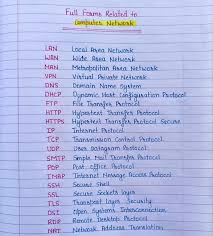 Full Forms Related to
Computer Network
LAN Local Area Network
WAN Wide Area Network
MAN Metropolitan Area Network
VPN Virtual Private Network
DNS Domain Name System
DHCP Dynamic Host Configuration Protocol
FTP File Transfer Protocol
HTTP Hypertext Transfer Protocol
HTTPS Hypertext Transfer Protocol Secure
IP Internet Protocol
TCP Transmission Control Protocol
UDP User Datagram Protocol
SMTP Simple Mail Transfer Protocol
POP Post office Protocol
IMAP Internet Message Access Protocol
SSH Secure Shell
SSL Secure Sockets layer
TLS Transport Layer Security
OSI Open Systems Interconnection
RDP Remote Desktop Protocol
NAT Network Address Translation